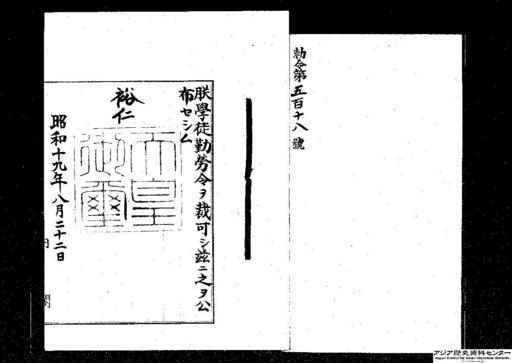 勅令第五百十八號
朕學徒勤勞令ヲ裁可シ茲ニ之ヲ公
布セシム
裕仁
天皇
御璽
昭和十九年八月二十二日
内
閣
アジア歴史資料センター
Japan Center for Asian Historical Records